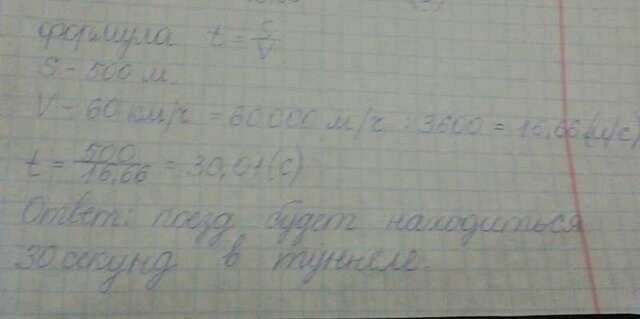 формула t = S/V
S - 500 м.
V - 60 км/ч = 60000 м/ч : 3600 = 16,66 (м/с)
t = 500/16,66 = 30,01 (с)
Ответ: поезд будет находиться
30 секунд в туннеле.